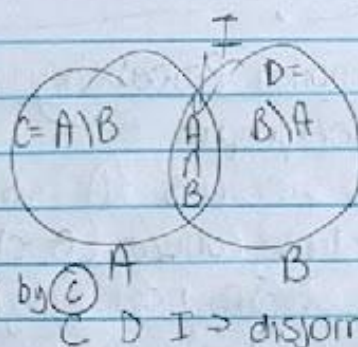 I
C = A\B
A
∩
B
D =
B\A
A
B
by ⓒ
C D I → disjoin